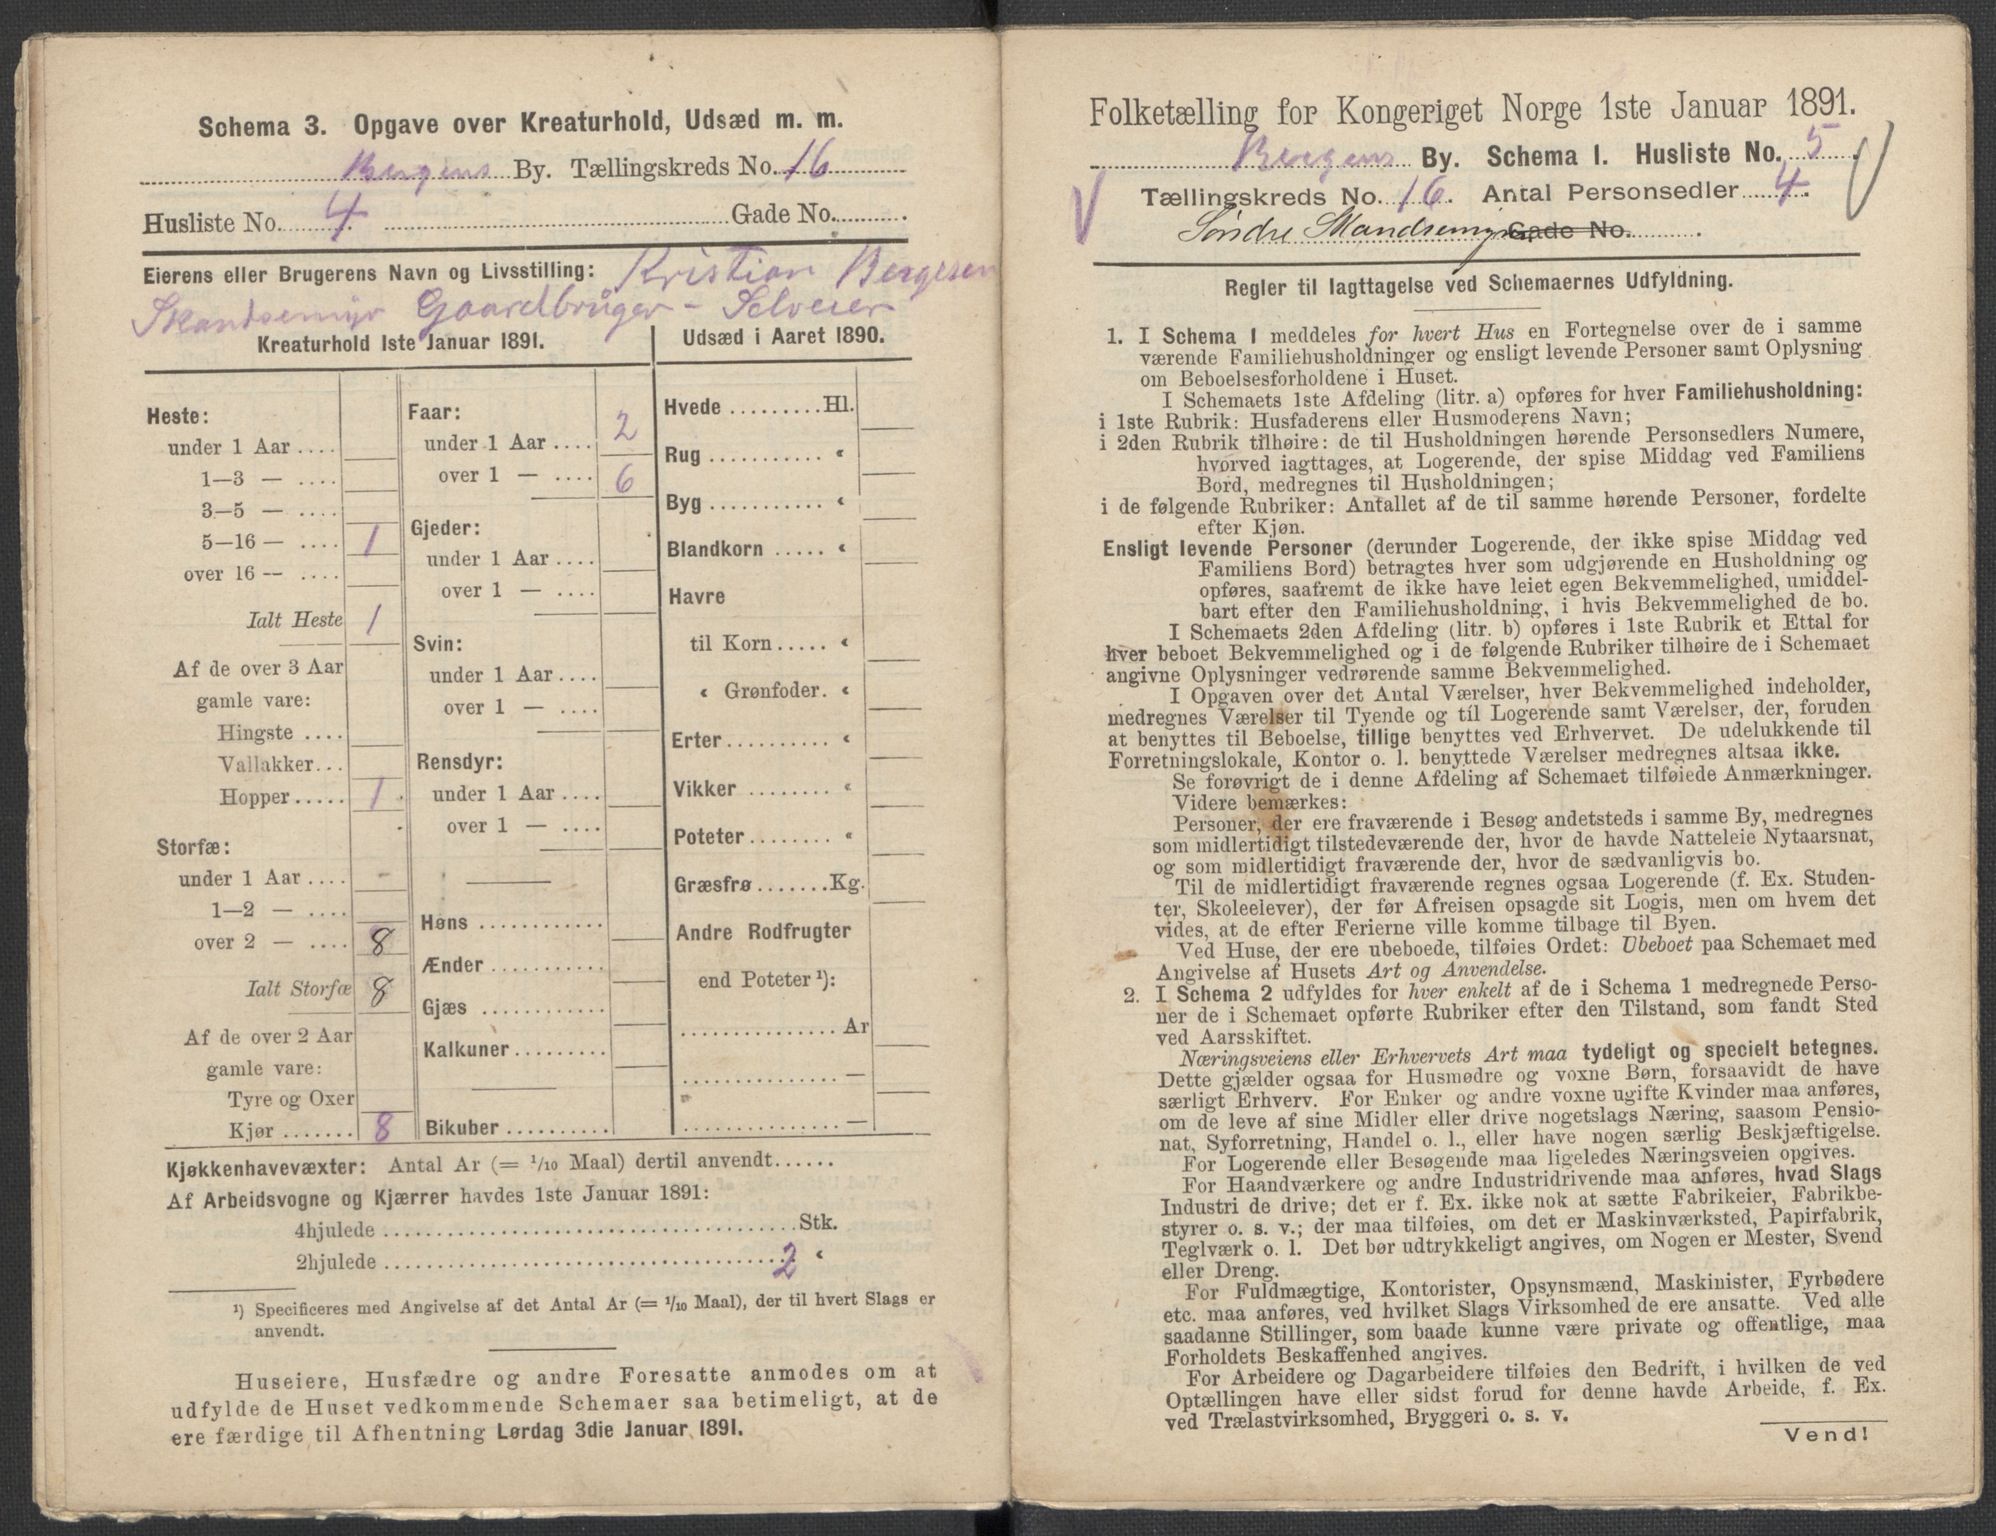 Schema 3. Opgave over Kreaturhold, Udsæd m. m.
Bergens By. Tællingskreds No. 16
Husliste No. 4 Gade No.
Eierens eller Brugerens Navn og Livsstilling: Kristian Bergesen
Skandsemyr Gaardbruger – Selveier
Kreaturhold 1ste Januar 1891.
Heste:
under 1 Aar ....
1—3 — ....
3—5 — ....
5—16 — .... 1
over 16 — ....
Ialt Heste 1
Af de over 3 Aar
gamle vare:
Hingste ....
Vallakker...
Hopper..... 1
Storfæ:
under 1 Aar .... -
1—2 — ....
over 2 — .... 8
Ialt Storfæ 8
Af de over 2 Aar
gamle vare:
Tyre og Oxer
Kjør ....... 8
Faar:
under 1 Aar .... 2
over 1 — .... 6
Gjeder:
under 1 Aar ....
over 1 — ....
Svin:
under 1 Aar ....
over 1 — ....
Rensdyr:
under 1 Aar ....
over 1 — ....
Høns ............
Ænder ...........
Gjæs ............
Kalkuner.........
Bikuber ..........
Udsæd i Aaret 1890.
Hvede .........Hl.
Rug ........... "
Byg ........... "
Blandkorn ..... "
Havre
til Korn..... "
" Grønfoder. "
Erter.......... "
Vikker ........ "
Poteter........ "
Græsfrø .......Kg.
Andre Rodfrugter
end Poteter ¹):
............... Ar
............... —
............... —
Kjøkkenhavevæxter: Antal Ar (= 1/10 Maal) dertil anvendt......
Af Arbeidsvogne og Kjærrer havdes 1ste Januar 1891:
4hjulede ........................................Stk.
2hjulede ........................................ 2 "
¹) Specificeres med Angivelse af det Antal Ar (= 1/10 Maal), der til hvert Slags er
anvendt.
Huseiere, Husfædre og andre Foresatte anmodes om at
udfylde de Huset vedkommende Schemaer saa betimeligt, at de
ere færdige til Afhentning Lørdag 3die Januar 1891.
Folketælling for Kongeriget Norge 1ste Januar 1891.
Bergens By. Schema 1. Husliste No. 5
Tællingskreds No. 16. Antal Personsedler 4.
Søndre Skandsemyren Gade No.
Regler til Iagttagelse ved Schemaernes Udfyldning.
1. I Schema 1 meddeles for hvert Hus en Fortegnelse over de i samme
værende Familiehusholdninger og ensligt levende Personer samt Oplysning
om Beboelsesforholdene i Huset.
I Schemaets 1ste Afdeling (litr. a) opføres for hver Familiehusholdning:
i 1ste Rubrik: Husfaderens eller Husmoderens Navn;
i 2den Rubrik tilhøire: de til Husholdningen hørende Personsedlers Numere,
hvorved iagttages, at Logerende, der spise Middag ved Familiens
Bord, medregnes til Husholdningen;
i de følgende Rubriker: Antallet af de til samme hørende Personer, fordelte
efter Kjøn.
Ensligt levende Personer (derunder Logerende, der ikke spise Middag ved
Familiens Bord) betragtes hver som udgjørende en Husholdning og
opføres, saafremt de ikke have leiet egen Bekvemmelighed, umiddel-
bart efter den Familiehusholdning, i hvis Bekvemmelighed de bo.
I Schemaets 2den Afdeling (litr. b) opføres i 1ste Rubrik et Ettal for
hver beboet Bekvemmelighed og i de følgende Rubriker tilhøire de i Schemaet
angivne Oplysninger vedrørende samme Bekvemmelighed.
I Opgaven over det Antal Værelser, hver Bekvemmelighed indeholder,
medregnes Værelser til Tyende og til Logerende samt Værelser, der, foruden
at benyttes til Beboelse, tillige benyttes ved Erhvervet. De udelukkende til
Forretningslokale, Kontor o. l. benyttede Værelser medregnes altsaa ikke.
Se forøvrigt de i denne Afdeling af Schemaet tilføiede Anmærkninger.
Videre bemærkes:
Personer, der ere fraværende i Besøg andetsteds i samme By, medregnes
som midlertidigt tilstedeværende der, hvor de havde Natteleie Nytaarsnat,
og som midlertidigt fraværende der, hvor de sædvanligvis bo.
Til de midlertidigt fraværende regnes ogsaa Logerende (f. Ex. Studen-
ter, Skoleelever), der før Afreisen opsagde sit Logis, men om hvem det
vides, at de efter Ferierne ville komme tilbage til Byen.
Ved Huse, der ere ubeboede, tilføies Ordet: Ubeboet paa Schemaet med
Angivelse af Husets Art og Anvendelse.
2. I Schema 2 udfyldes for hver enkelt af de i Schema 1 medregnede Perso-
ner de i Schemaet opførte Rubriker efter den Tilstand, som fandt Sted
ved Aarsskiftet.
Næringsveiens eller Erhvervets Art maa tydeligt og specielt betegnes.
Dette gjælder ogsaa for Husmødre og voxne Børn, forsaavidt de have
særligt Erhverv. For Enker og andre voxne ugifte Kvinder maa anføres,
om de leve af sine Midler eller drive nogetslags Næring, saasom Pensio-
nat, Syforretning, Handel o. l., eller have nogen særlig Beskjæftigelse.
For Logerende eller Besøgende maa ligeledes Næringsveien opgives.
For Haandværkere og andre Industridrivende maa anføres, hvad Slags
Industri de drive; det er f. Ex. ikke nok at sætte Fabrikeier, Fabrikbe-
styrer o. s. v.; der maa tilføies, om det er Maskinværksted, Papirfabrik,
Teglværk o. l. Det bør udtrykkeligt angives, om Nogen er Mester, Svend
eller Dreng.
For Fuldmægtige, Kontorister, Opsynsmænd, Maskinister, Fyrbødere
etc. maa anføres, ved hvilket Slags Virksomhed de ere ansatte. Ved alle
saadanne Stillinger, som baade kunne være private og offentlige, maa
Forholdets Beskaffenhed angives.
For Arbeidere og Dagarbeidere tilføies den Bedrift, i hvilken de ved
Optællingen have eller sidst forud for denne havde Arbeide, f. Ex.
ved Trælastvirksomhed, Bryggeri o. s. v.
Vend!